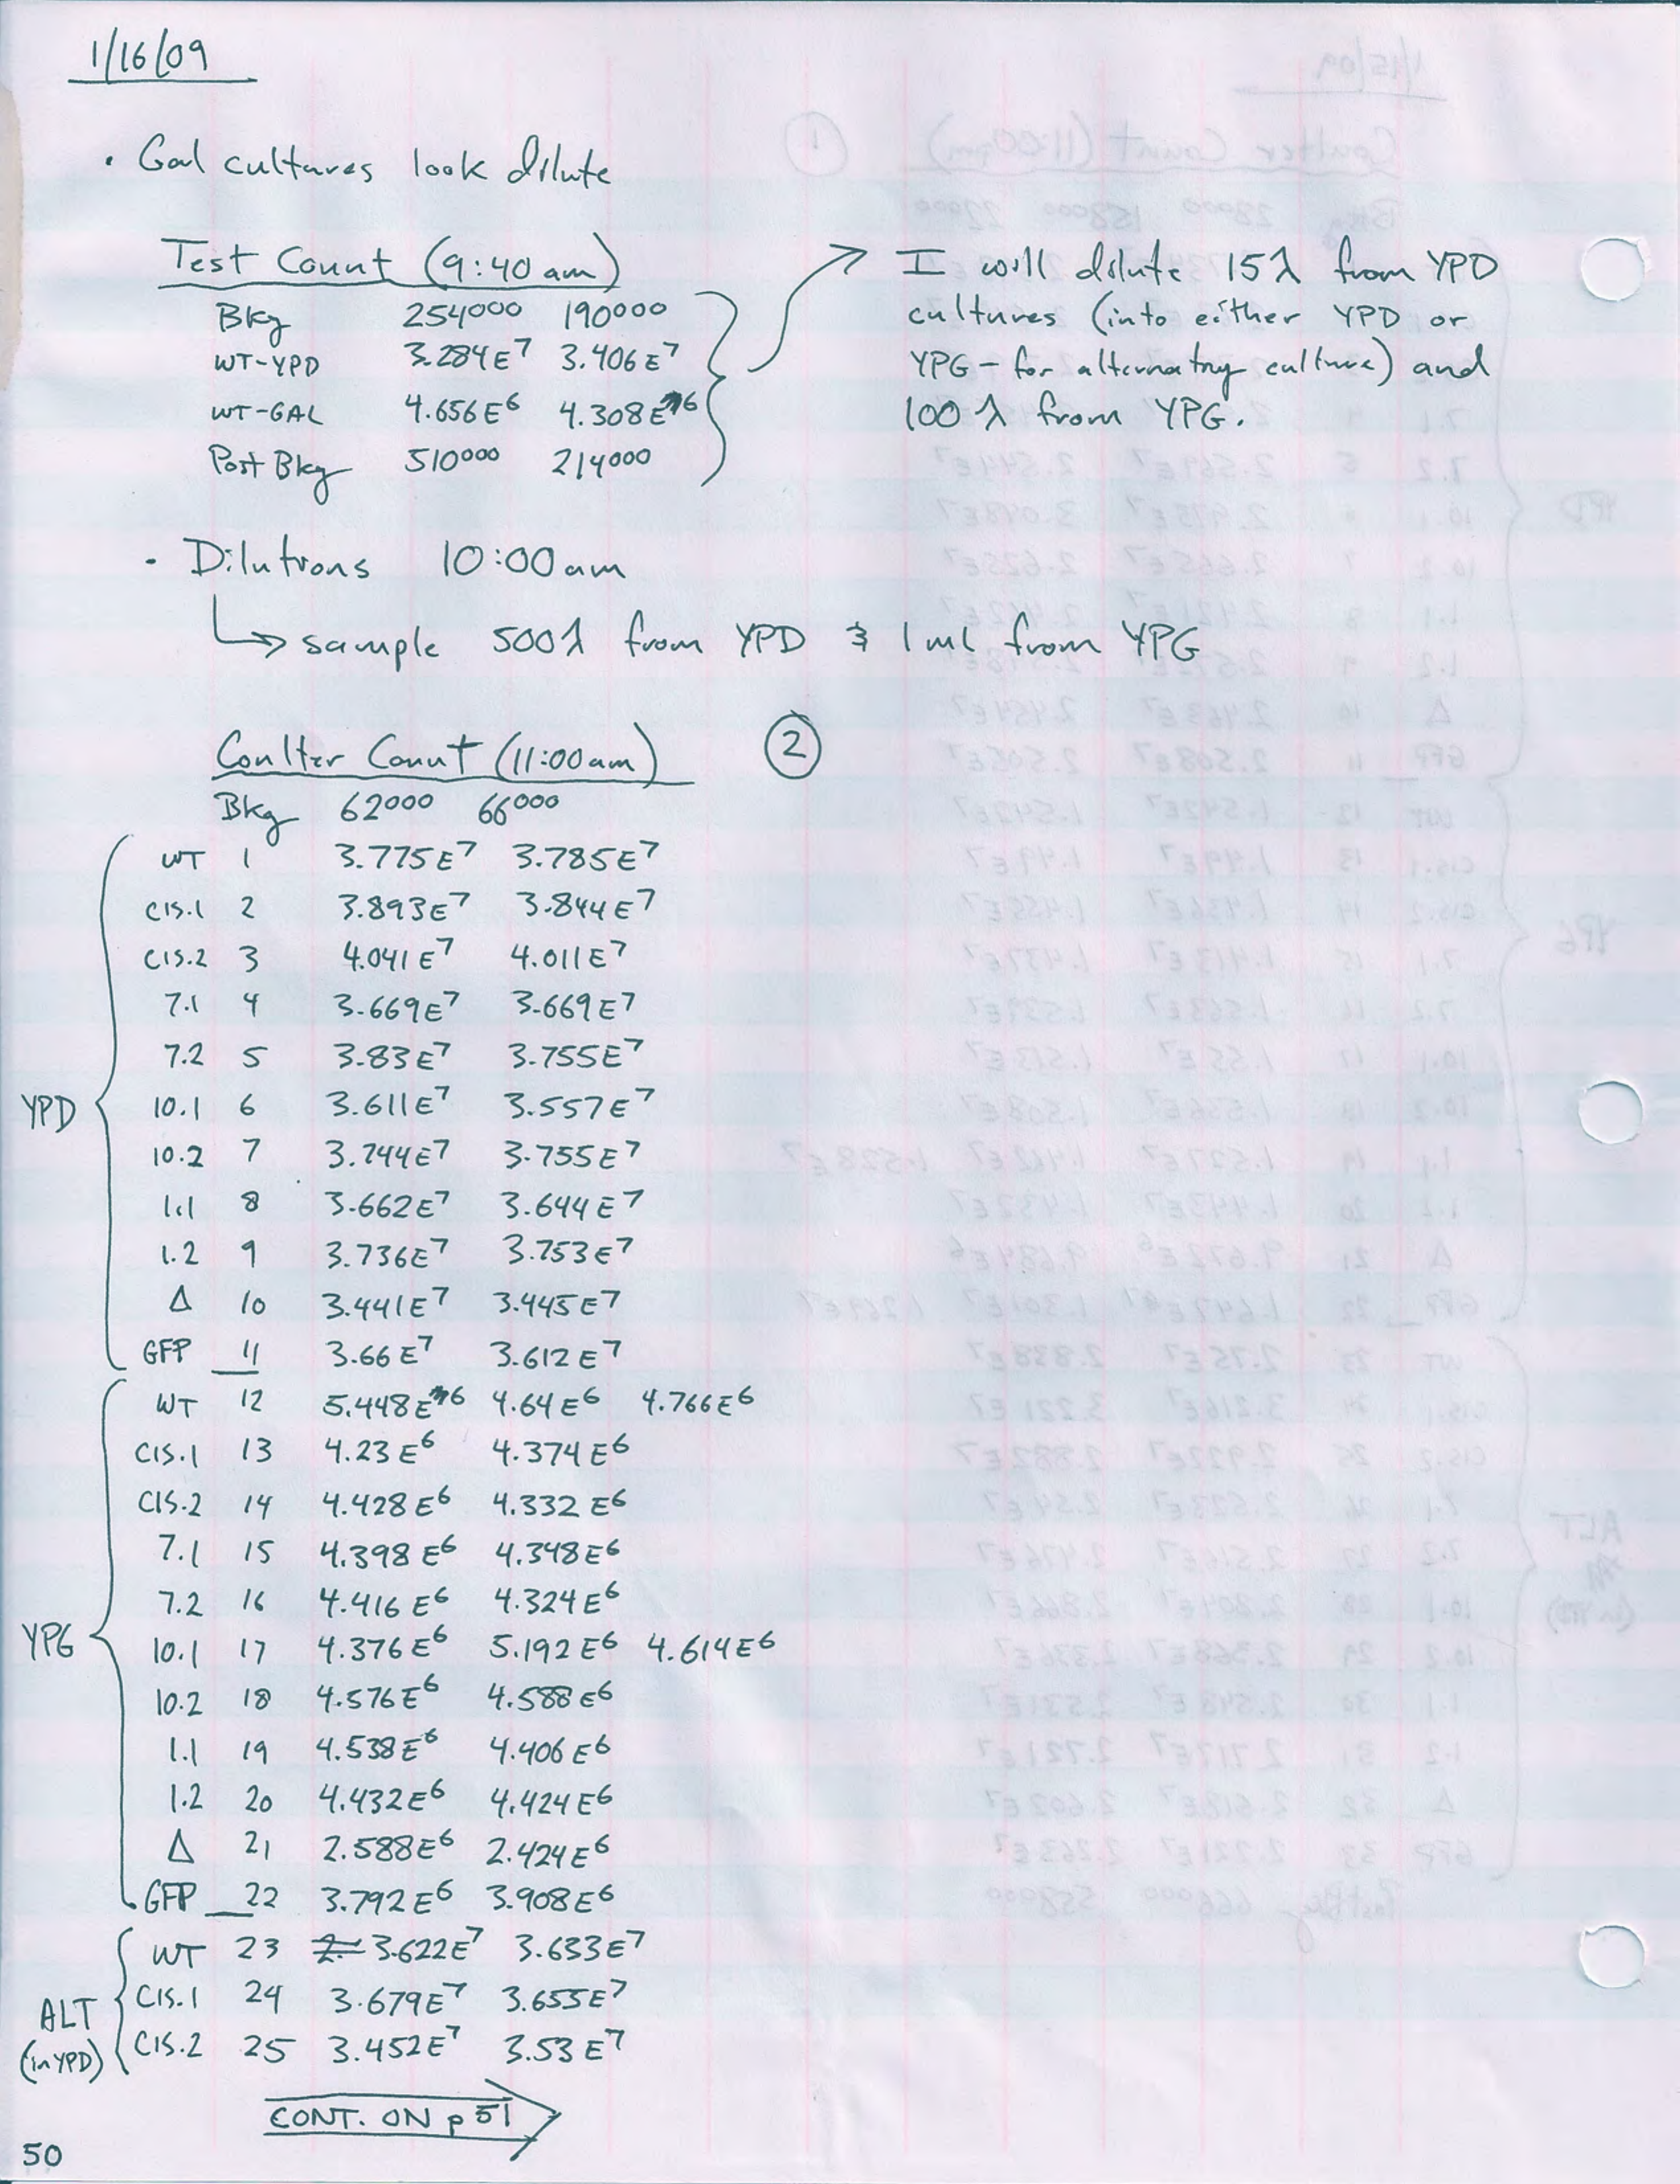 1/16/09
• Gal cultures look dilute
Test Count (9:40 am)
Bkg 254000 190000
WT-YPD 3.284E7 3.406E7
WT-GAL 4.656E6 4.308E6
Post Bkg 510000 214000
I will dilute 15λ from YPD
cultures (into either YPD or
YPG - for alternatng culture) and
100 λ from YPG.
• Dilutions 10:00am
↳ sample 500λ from YPD & 1ml from YPG
Coulter Count (11:00am) ②
Bkg 62000 66000
YPD
WT 1 3.775E7 3.785E7
CIS.1 2 3.893E7 3.844E7
CIS.2 3 4.041E7 4.011E7
7.1 4 3.669E7 3.669E7
7.2 5 3.83E7 3.755E7
10.1 6 3.611E7 3.557E7
10.2 7 3.744E7 3.755E7
1.1 8 3.662E7 3.644E7
1.2 9 3.736E7 3.753E7
Δ 10 3.441E7 3.445E7
GFP 11 3.66E7 3.612E7
YPG
WT 12 5.448E6 4.64E6 4.766E6
CIS.1 13 4.23E6 4.374E6
CIS.2 14 4.428E6 4.332E6
7.1 15 4.398E6 4.348E6
7.2 16 4.416E6 4.324E6
10.1 17 4.376E6 5.192E6 4.614E6
10.2 18 4.576E6 4.588E6
1.1 19 4.538E6 4.406E6
1.2 20 4.432E6 4.424E6
Δ 21 2.588E6 2.424E6
GFP 22 3.792E6 3.908E6
ALT
(in YPD)
WT 23 2. 3.622E7 3.633E7
CIS.1 24 3.679E7 3.655E7
CIS.2 25 3.452E7 3.53E7
CONT. ON p 51
50